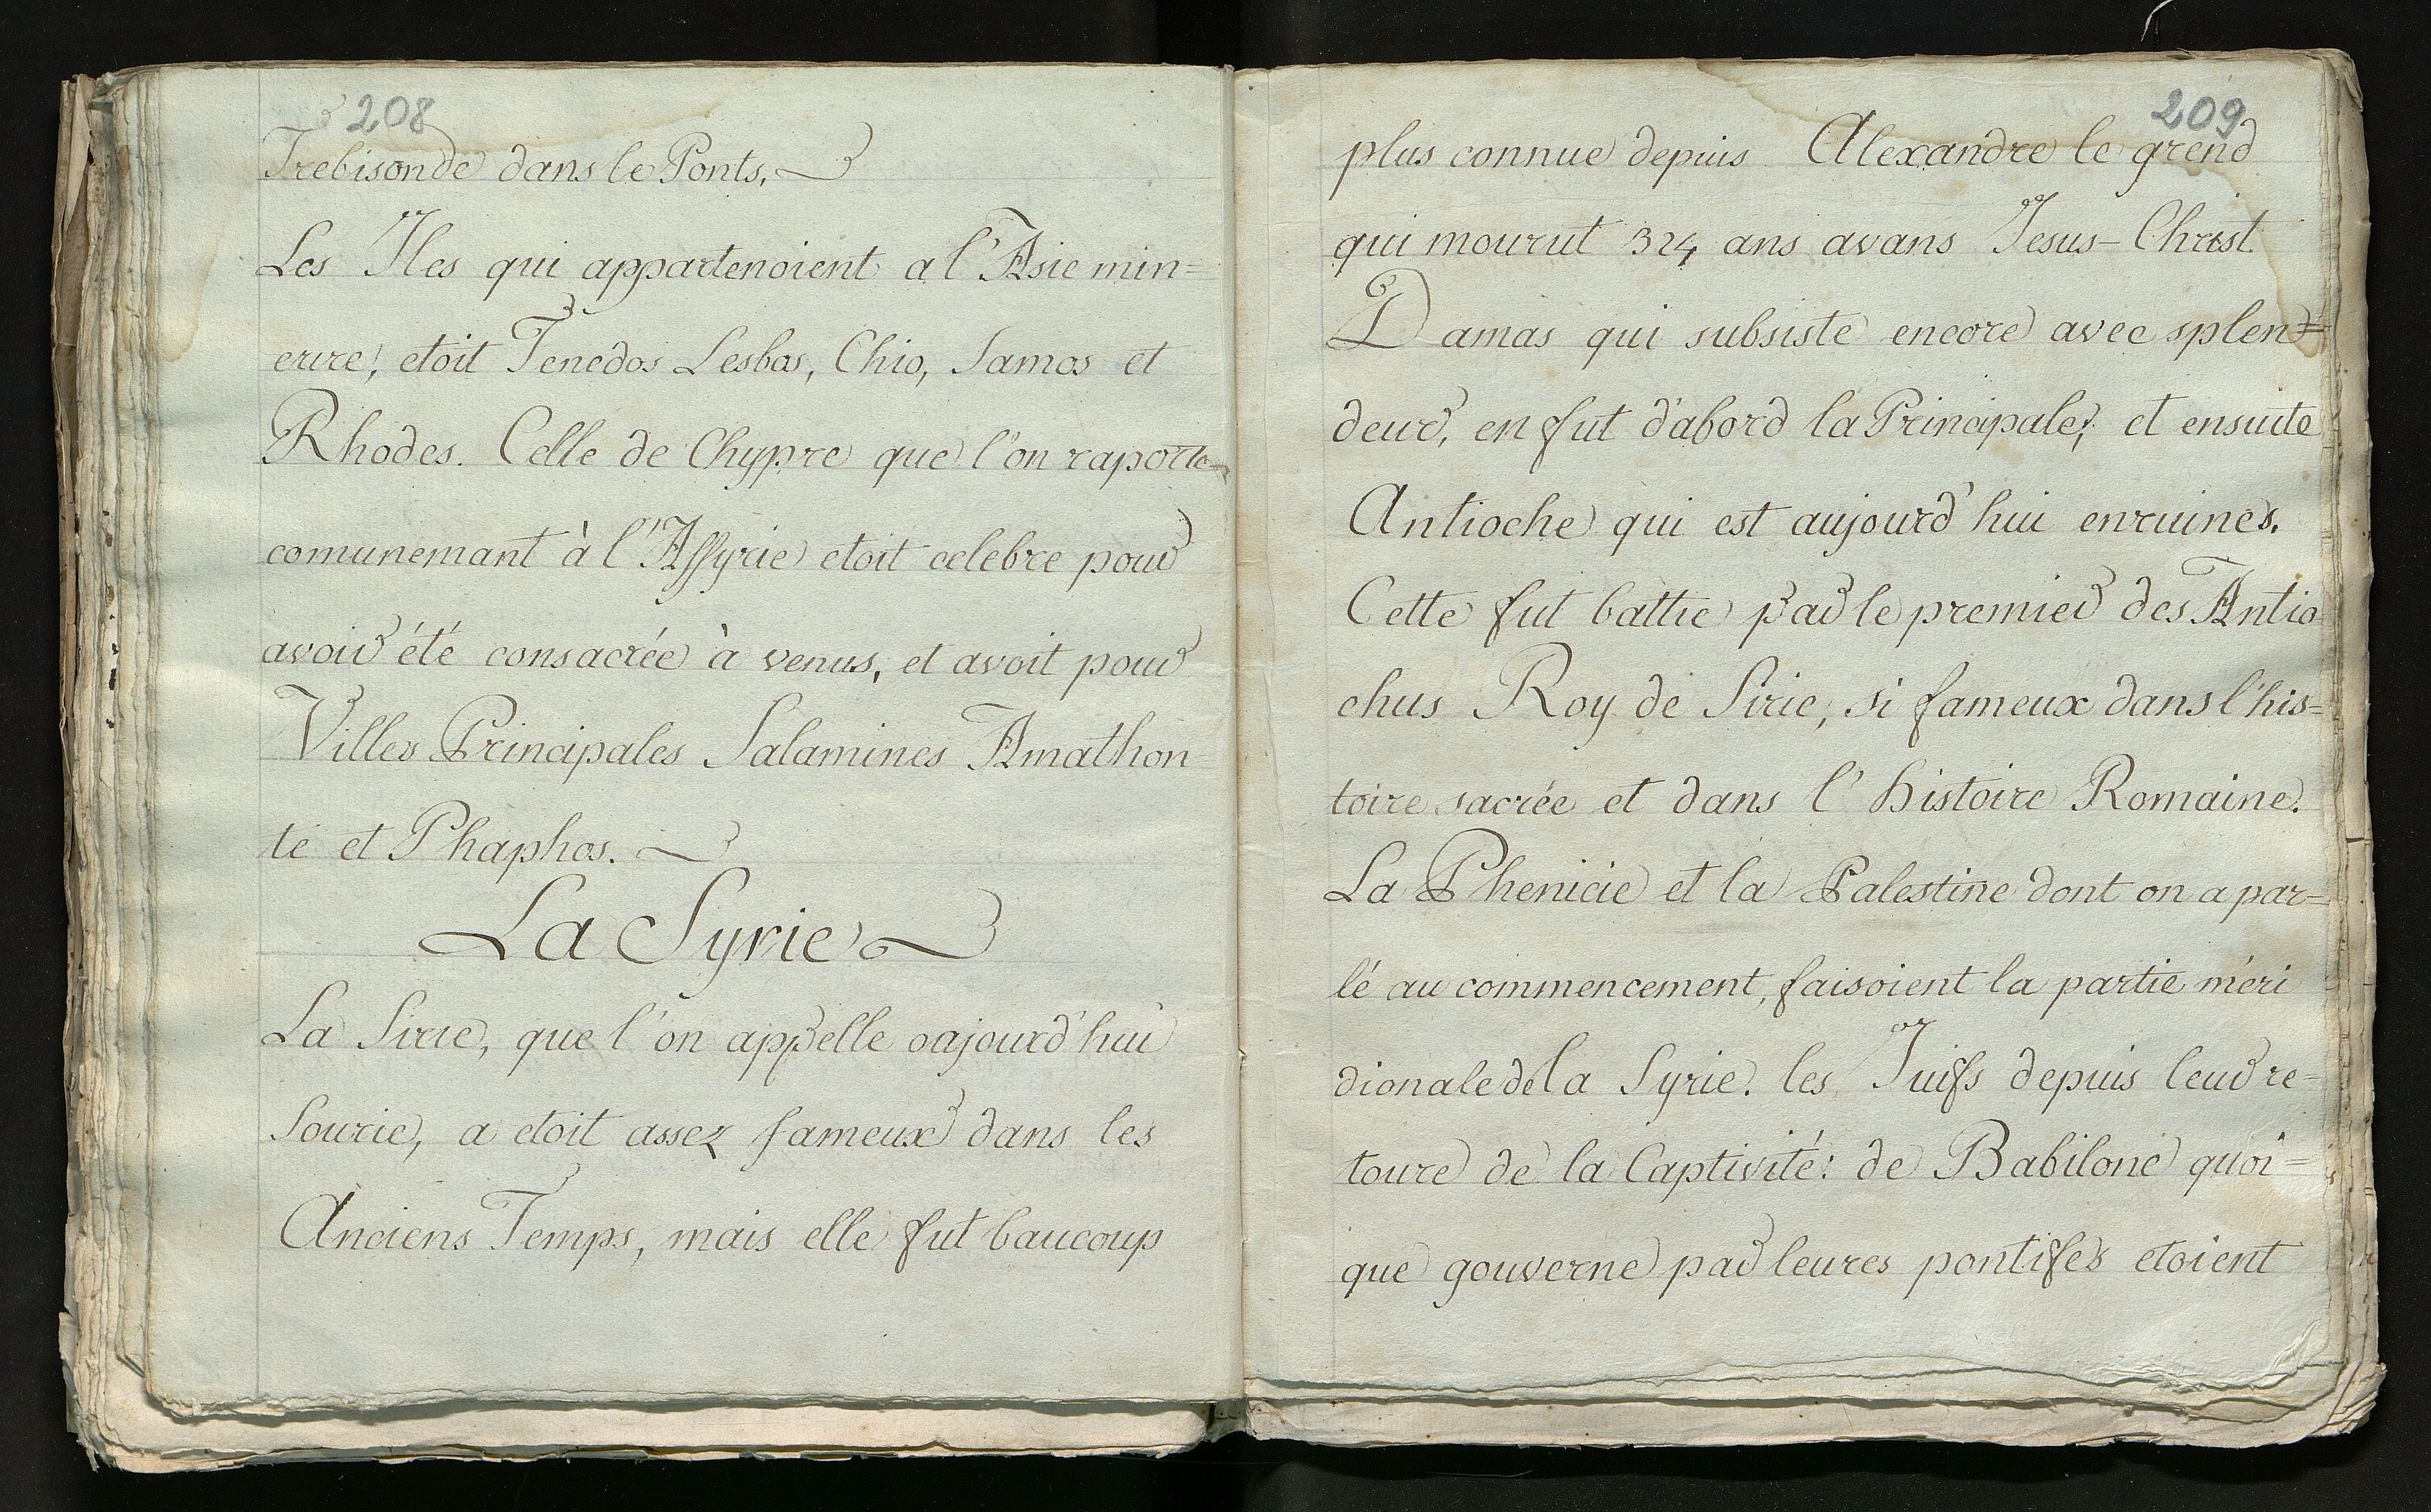 208
Trebisonde dans le Ponts.
Les Iles qui appartenoient a l'Asie min=
erure, etoit Tenedos Lesbos, Chio, Samos et
Rhodes. Celle de Chypre que l'on raporte
comunemant à l'Assyrie etoit celebre pour
avoir été consacrée à venus, et avoit pour
Villes Principales Salamines Amathon=
te et Phaphos.
La Syrie
La Sirie, que l'on appelle oajourd'hui
Sourie, a etoit assez fameux dans les
Anciens Temps, mais elle fut baucoup
209
plus connue depuis Alexandre le grend
qui mourut 324 ans avans Jesus-Christ
Damas qui subsiste encore avec splen=
deur, en fut d'abord la Principale, et ensuite
Antioche qui est aujourd'hui enruines.
Cette fut battie par le premier des Antio
chus Roy de Sirie, si fameux dans l'his=
toire sacrée et dans l'histoire Romaine.
La Phenicie et la Palestine dont on a par=
lé au commencement, faisoient la partie méri
dionale de la Syrie. les Juifs depuis leur re=
toure de la Captivité: de Babilone quoi=
que gouverne par leures pontifes etoient